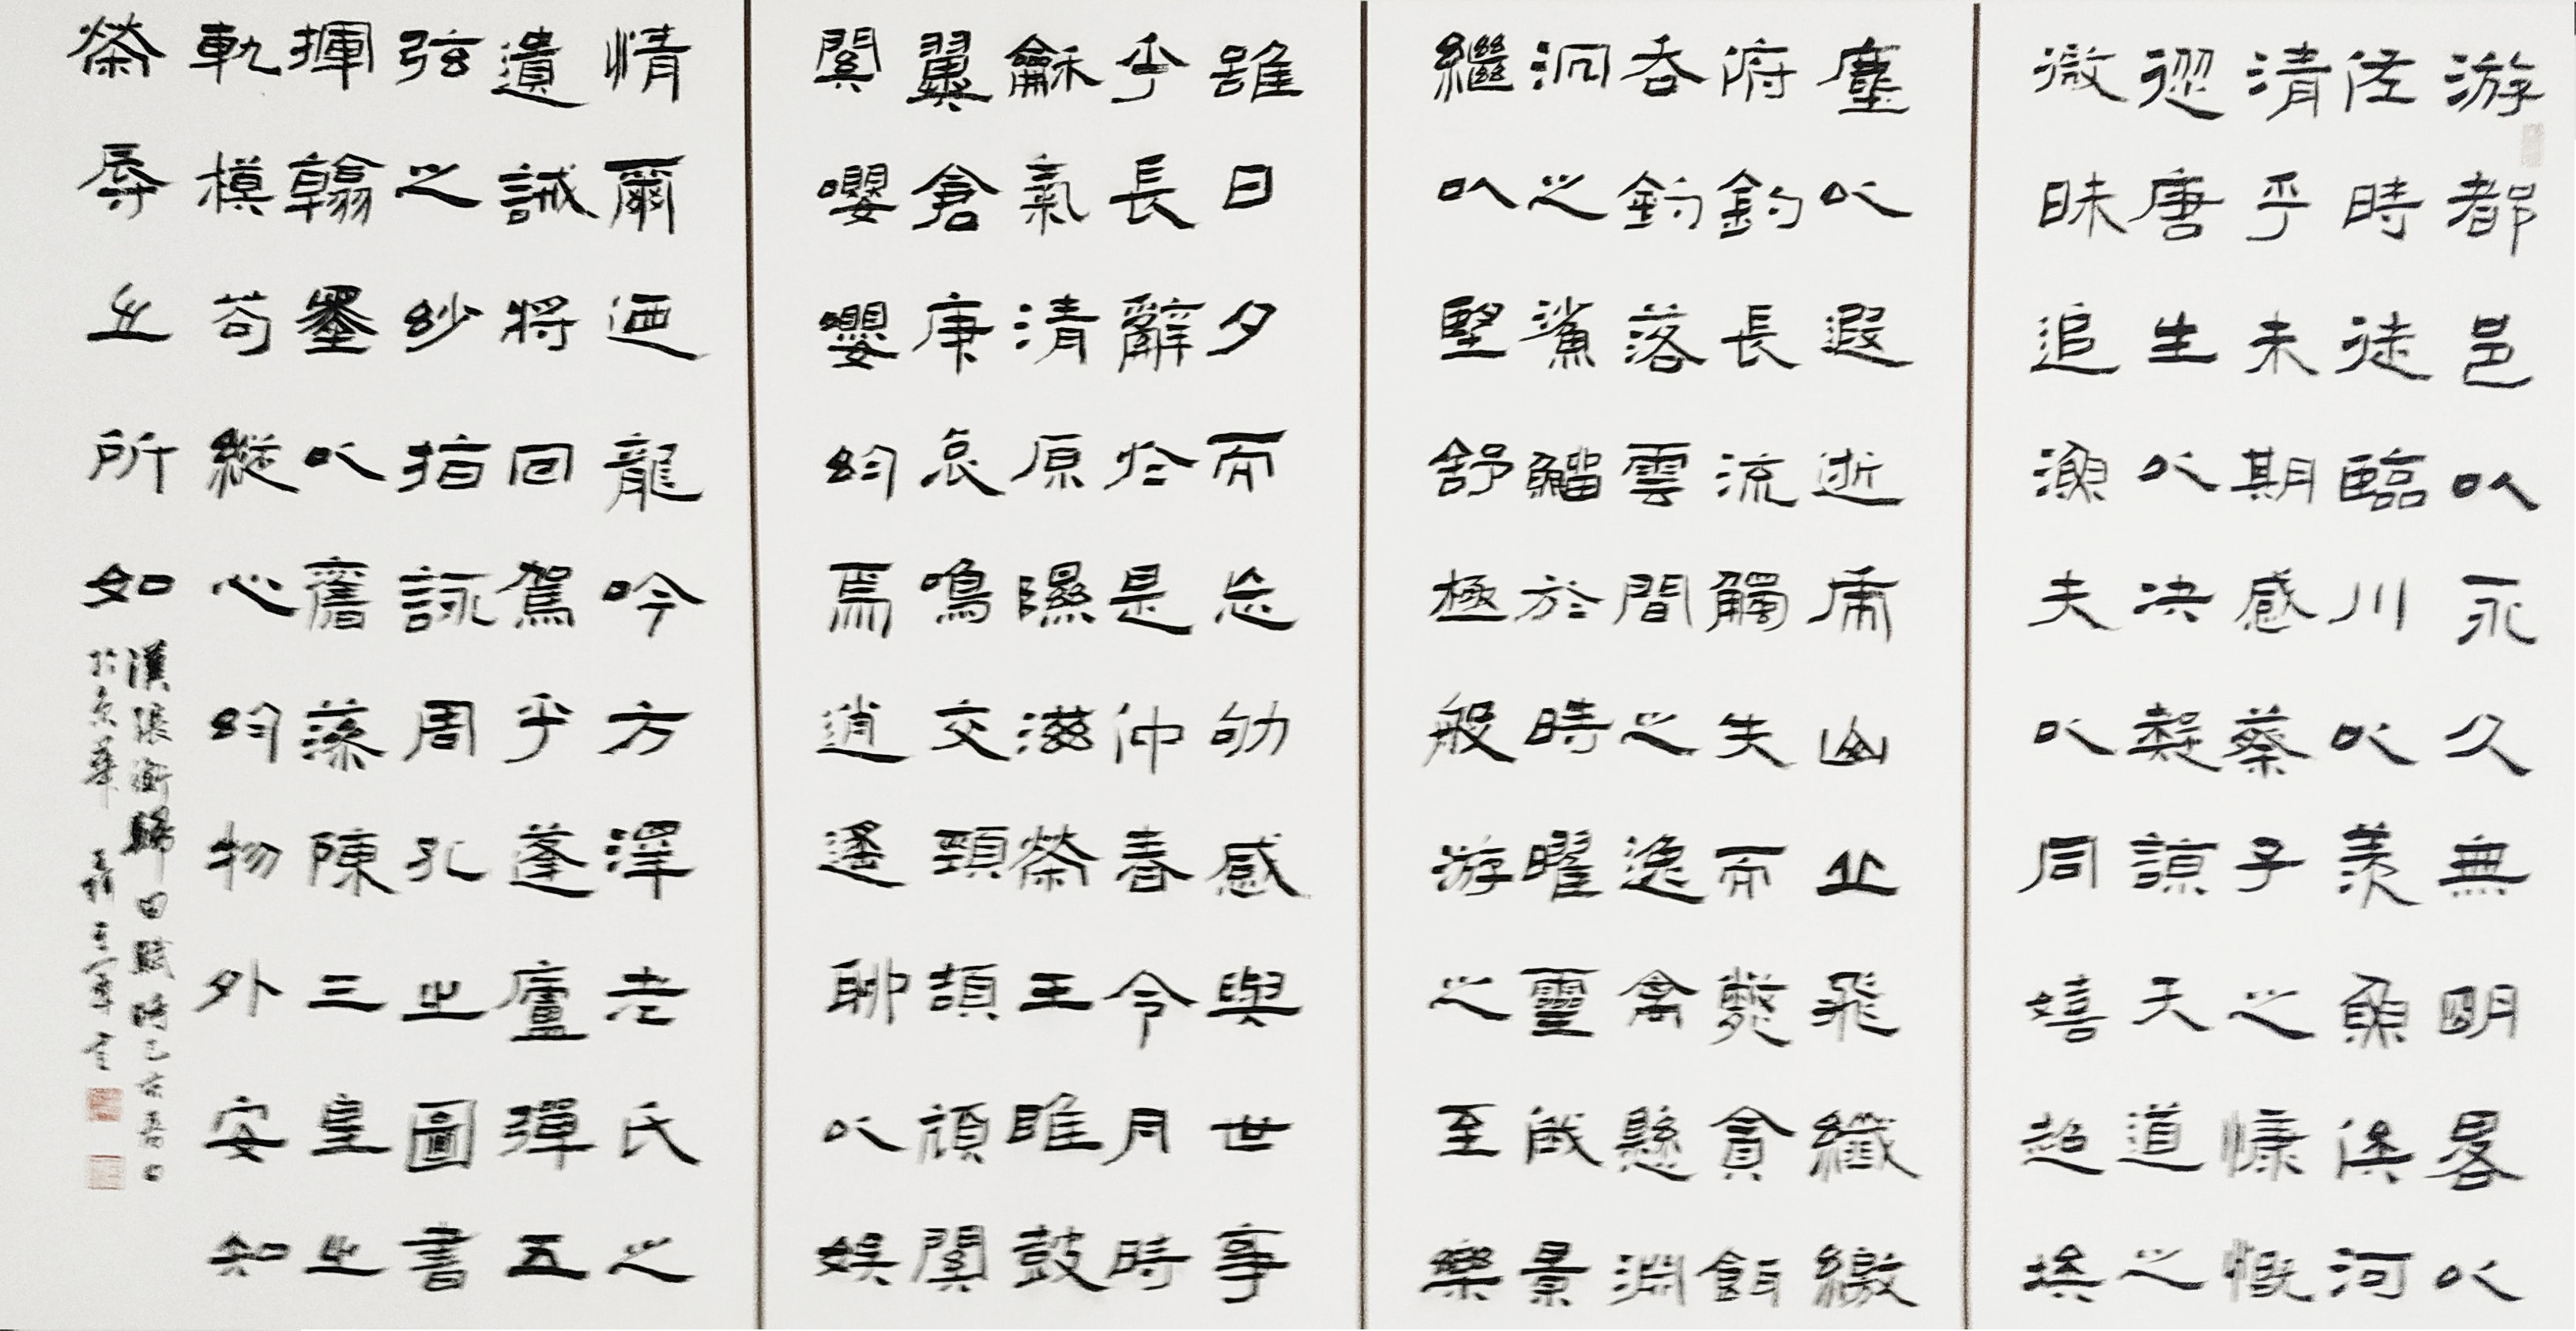 游都邑以永久無明畧以
佐時徒臨川以羨魚俟河
清乎未期感蔡子之慷慨
從唐生以決疑諒天道之
微昧追漁夫以同嬉超埃
塵以遐逝虎山丘飛纖繳
府釣長流觸矢而斃貪餌
吞鉤落雲間之逸禽懸淵
沉之鯊鰡於時曜靈俄景
繼以望舒極般游之至樂
雖日夕而忘劬感與世事
乎長辭於是仲春令月時
龢氣清原隰滋榮王雎鼓
翼倉庚哀鳴交頸頡頏關
關嚶嚶於焉逍遙聊以娛
情爾迺龍吟方澤老氏之
遺誡將回駕乎蓬廬彈五
弦之妙指詠周孔之圖書
揮翰墨以舊藻陳三皇之
軌模苟縱心於物外安知
榮辱之所如
漢張衡歸田賦時己亥春日
於京華